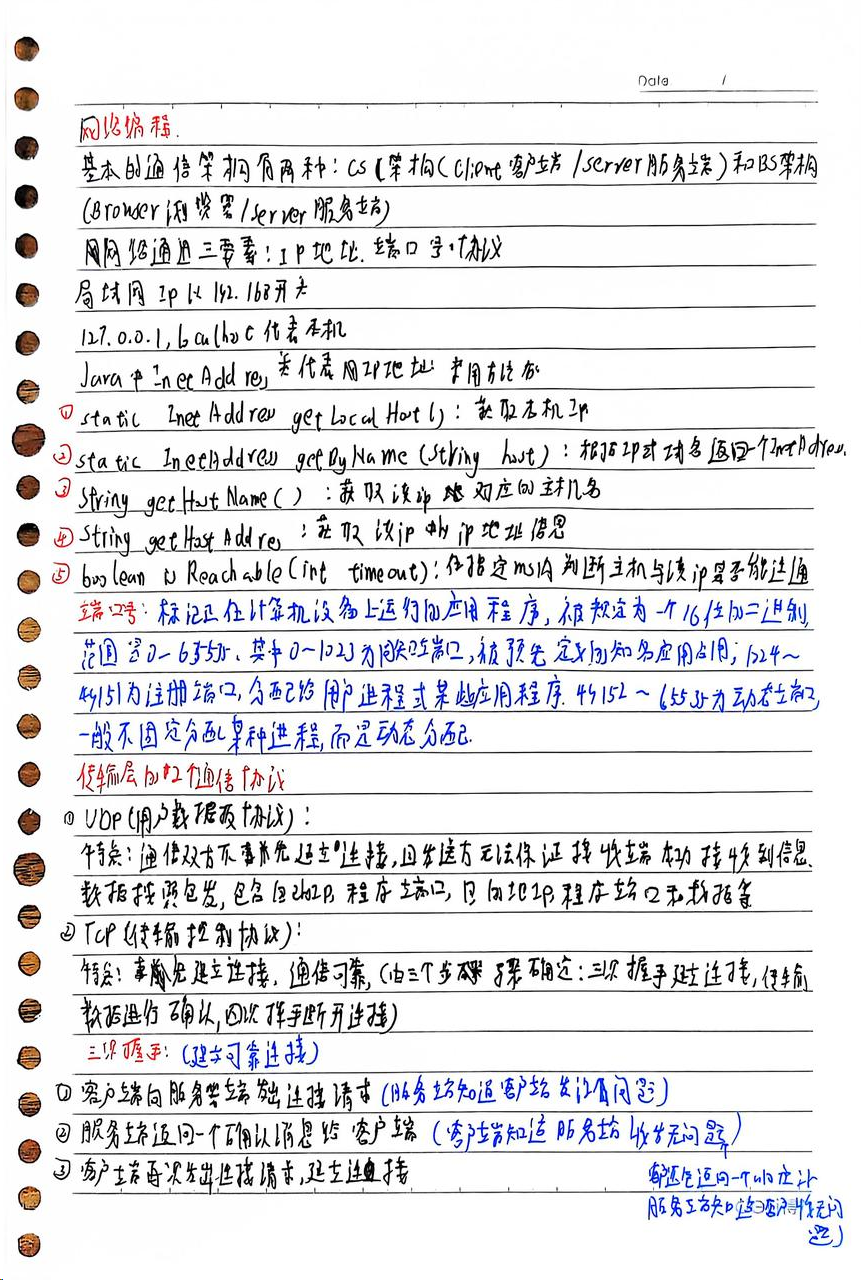 Date /
网络编程.
基本的通信架构有两种: CS(架构(Client客户端/server服务端)和BS架构
(Browser浏览器/server服务端)
网络通迅三要素: IP地址. 端口号.协议
局域网 Ip 以 192.168开头
127.0.0.1, localhost 代表本机
Java中InetAddress类代表网IP地址 常用方法有
① static InetAddress getLocalHost(): 获取本机Ip
② static InetAddress getByName(String host): 根据IP或域名返回一个InetAddress.
③ String getHostName(): 获取该ip地对应的主机名
④ String getHostAddress: 获取该ip的ip地址信息
⑤ boolean isReachable(int timeout): 在指定ms内判断主机与该ip是否能连通
端口号: 标记正在计算机设备上运行的应用程序, 被规定为一个16位的二进制,
范围是0~65535. 其中0~1023为周知端口, 被预先定义的知名应用占用; 1024~
49151为注册端口, 分配给用户进程或某些应用程序. 49152~65535为动态端口,
一般不固定分配某种进程, 而是动态分配.
传输层的2个通信协议
① UDP(用户数据报协议):
特点: 通信双方不事先建立连接, 且发送方无法保证接收端成功接收到信息.
数据按照包发, 包含自己的IP, 程序端口, 目的地IP, 程序端口和数据等
② TCP(传输控制协议):
特点: 事前先建立连接, 通信可靠, (由三个步骤确定: 三次握手建立连接, 传输
数据进行确认, 四次挥手断开连接)
三次握手: (建立可靠连接)
① 客户端向服务端发出连接请求 (服务端知道客户端发没有问题)
② 服务端返回一个确认消息给客户端 (客户端知道服务端收发无问题)
③ 客户端再次发出连接请求, 建立连接
返回一个响应让
服务端知道客户收无问
题)